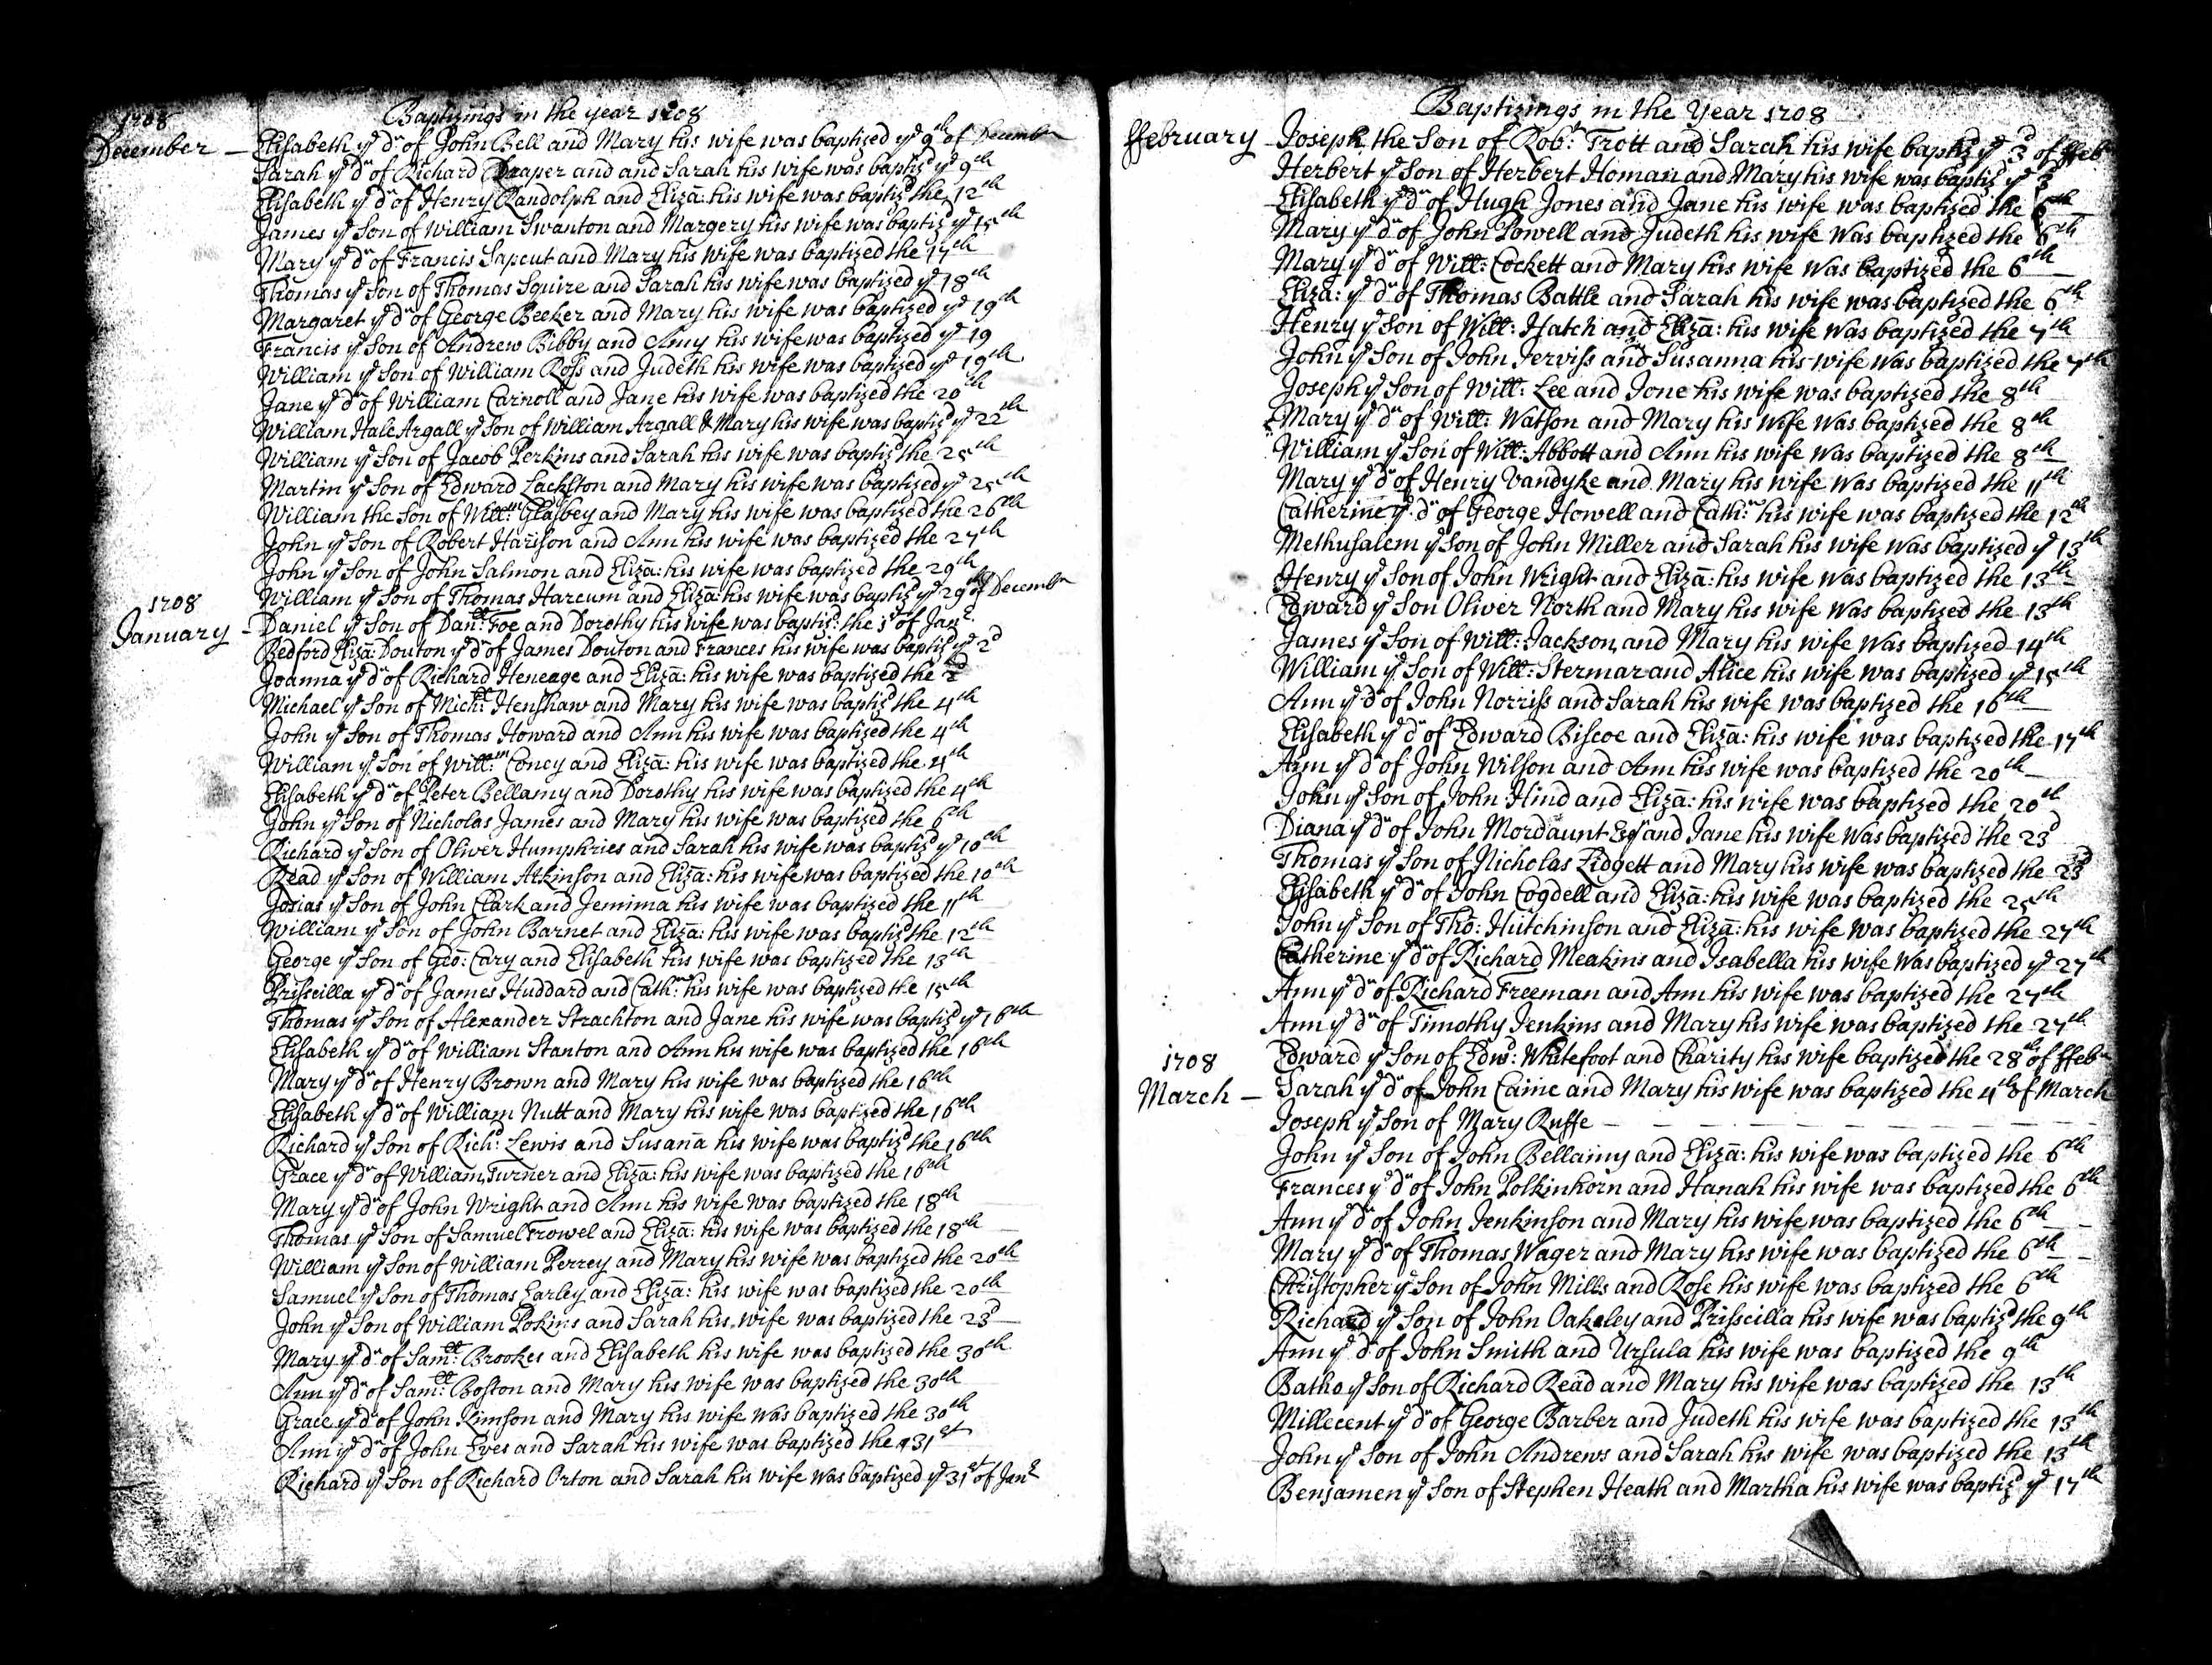 1708
Baptizings in the year 1708
December — Elisabeth ye dr of John Bell and Mary his wife was baptized ye 9th of Decembr
Sarah ye dr of Richard Draper and and Sarah his wife was baptizd ye 9th
Elisabeth ye dr of Henry Randolph and Eliza: his wife was baptizd the 12th
James ye Son of William Swanton and Margery his wife was baptizd ye 15th
Mary ye dr of Francis Sapcut and Mary his wife was baptized the 17th
Thomas ye Son of Thomas Squire and Sarah his wife was baptized ye 18th
Margaret ye dr of George Becker and Mary his wife was baptized ye 19th
Francis ye Son of Andrew Bibby and Amy his wife was baptized ye 19
William ye Son of William Ross and Judeth his wife was baptized ye 19th
Jane ye dr of William Carnoll and Jane his wife was baptized the 20th
William Hale Argall ye Son of William Argall & Mary his wife was baptizd ye 22th
William ye Son of Jacob Perkins and Sarah his wife was baptizd the 25th
Martin ye Son of Edward Lackston and Mary his wife was baptized ye 25th
William the Son of Willm: Glasbey and Mary his wife was baptized the 26th
John ye Son of Robert Harison and Ann his wife was baptized the 27th
John ye Son of John Salmon and Eliza: his wife was baptized the 29th
William ye Son of Thomas Harcum and Eliza: his wife was baptizd ye 29th of Decembr
1708
January — Daniel ye Son of Danll: Foe and Dorothy his wife was baptizd: the 1st of Janr:
Bedford Eliza: Douton ye dr of James Douton and Frances his wife was baptizd ye 2d
Joanna ye dr of Richard Heneage and Eliza: his wife was baptized the 2d
Michael ye Son of Michll: Henshaw and Mary his wife was baptizd the 4th
John ye Son of Thomas Howard and Ann his wife was baptized the 4th
William ye Son of Willm: Coney and Eliza: his wife was baptized the 4th
Elisabeth ye dr of Peter Bellamy and Dorothy his wife was baptized the 4th
John ye Son of Nicholas James and Mary his wife was baptized the 6th
Richard ye Son of Oliver Humphries and Sarah his wife was baptizd ye 10th
Read ye Son of William Atkinson and Eliza: his wife was baptized the 10th
Josias ye Son of John Clark and Jemima his wife was baptized the 11th
William ye Son of John Barnet and Eliza: his wife was baptizd the 12th
George ye Son of Geo: Cary and Elisabeth his wife was baptized the 13th
Prisscilla ye dr of James Huddard and Cathne: his wife was baptized the 15th
Thomas ye Son of Alexander Strachton and Jane his wife was baptizd ye 16th
Elisabeth ye dr of William Stanton and Ann his wife was baptized the 16th
Mary ye dr of Henry Brown and Mary his wife was baptized the 16th
Elisabeth ye dr of William Nutt and Mary his wife was baptized the 16th
Richard ye Son of Richd: Lewis and Susana his wife was baptizd the 16th
Grace ye dr of William Turner and Eliza: his wife was baptized the 16th
Mary ye dr of John Wright and Ann his wife was baptized the 18th
Thomas ye Son of Samuel Trowel and Eliza: his wife was baptized the 18th
William ye Son of William Perrey and Mary his wife was baptized the 20th
Samuel ye Son of Thomas Earley and Eliza: his wife was baptized the 20th
John ye Son of William Pokins and Sarah his wife was baptized the 23d
Mary ye dr of Samll: Brookes and Elisabeth his wife was baptized the 30th
Ann ye dr of Samll: Boston and Mary his wife was baptized the 30th
Grace ye dr of John Kimson and Mary his wife was baptized the 30th
Ann ye dr of John Eves and Sarah his wife was baptized the 31st
Richard ye Son of Richard Orton and Sarah his wife was baptized ye 31st of Janr
Baptizings in the Year 1708
ffebruary — Joseph the Son of Robt: Trott and Sarah his wife baptizd ye 3d of ffeb
Herbert ye Son of Herbert Homan and Mary his wife was baptizd ye 3d
Elisabeth ye dr of Hugh Jones and Jane his wife was baptized the 6th
Mary ye dr of John Powell and Judeth his wife was baptized the 6th
Mary ye dr of Will: Cockett and Mary his wife was baptized the 6th
Eliza: ye dr of Thomas Battle and Sarah his wife was baptized the 6th
Henry ye Son of Will: Hatch and Eliza: his wife was baptized the 7th
John ye Son of John Jerviss and Susanna his wife was baptized the 7th
Joseph ye Son of Will: Lee and Jone his wife was baptized the 8th
Mary ye dr of Will: Watson and Mary his wife was baptized the 8th
William ye Son of Will: Abbott and Ann his wife was baptized the 8th
Mary ye dr of Henry Vandyke and Mary his wife was baptized the 11th
Catherine ye dr of George Howell and Cathne: his wife was baptized the 12th
Methusalem ye Son of John Miller and Sarah his wife was baptized ye 13th
Henry ye Son of John Wright and Eliza: his wife was baptized the 13th
Edward ye Son Oliver North and Mary his wife was baptized the 13th
James ye Son of Will: Jackson and Mary his wife was baptized 14th
William ye Son of Will: Stermar and Alice his wife was baptized ye 15th
Ann ye dr of John Norriss and Sarah his wife was baptized the 16th
Elisabeth ye dr of Edward Biscoe and Eliza: his wife was baptized the 17th
Ann ye dr of John Wilson and Ann his wife was baptized the 20th
John ye Son of John Hind and Eliza: his wife was baptized the 20th
Diana ye dr of John Mordaunt Esqr and Jane his wife was baptized the 23d
Thomas ye Son of Nicholas Lidgett and Mary his wife was baptized the 23d
Elisabeth ye dr of John Cogdell and Eliza: his wife was baptized the 25th
John ye Son of Tho: Hutchinson and Eliza: his wife was baptized the 27th
Catherine ye dr of Richard Meakins and Isabella his wife was baptized ye 27th
Ann ye dr of Richard Freeman and Ann his wife was baptized the 27th
Ann ye dr of Timothy Jenkins and Mary his wife was baptized the 27th
Edward ye Son of Edwd: Whitefoot and Charity his wife baptized the 28th of ffebr
1708
March — Sarah ye dr of John Caine and Mary his wife was baptized the 4th of March
Joseph ye Son of Mary Ruffe — — — — — — — —
John ye Son of John Bellamy and Eliza: his wife was baptized the 6th
Frances ye dr of John Polkinhorn and Hanah his wife was baptized the 6th
Ann ye dr of John Jenkinson and Mary his wife was baptized the 6th
Mary ye dr of Thomas Wager and Mary his wife was baptized the 6th
Christopher ye Son of John Mills and Rose his wife was baptized the 6th
Richard ye Son of John Oakeley and Prisscilla his wife was baptizd the 9th
Ann ye dr of John Smith and Ursula his wife was baptized the 9th
Batho ye Son of Richard Read and Mary his wife was baptized the 13th
Millecent ye dr of George Barber and Judeth his wife was baptized the 13th
John ye Son of John Andrews and Sarah his wife was baptized the 13th
Benjamen ye Son of Stephen Heath and Martha his wife was baptizd ye 17th